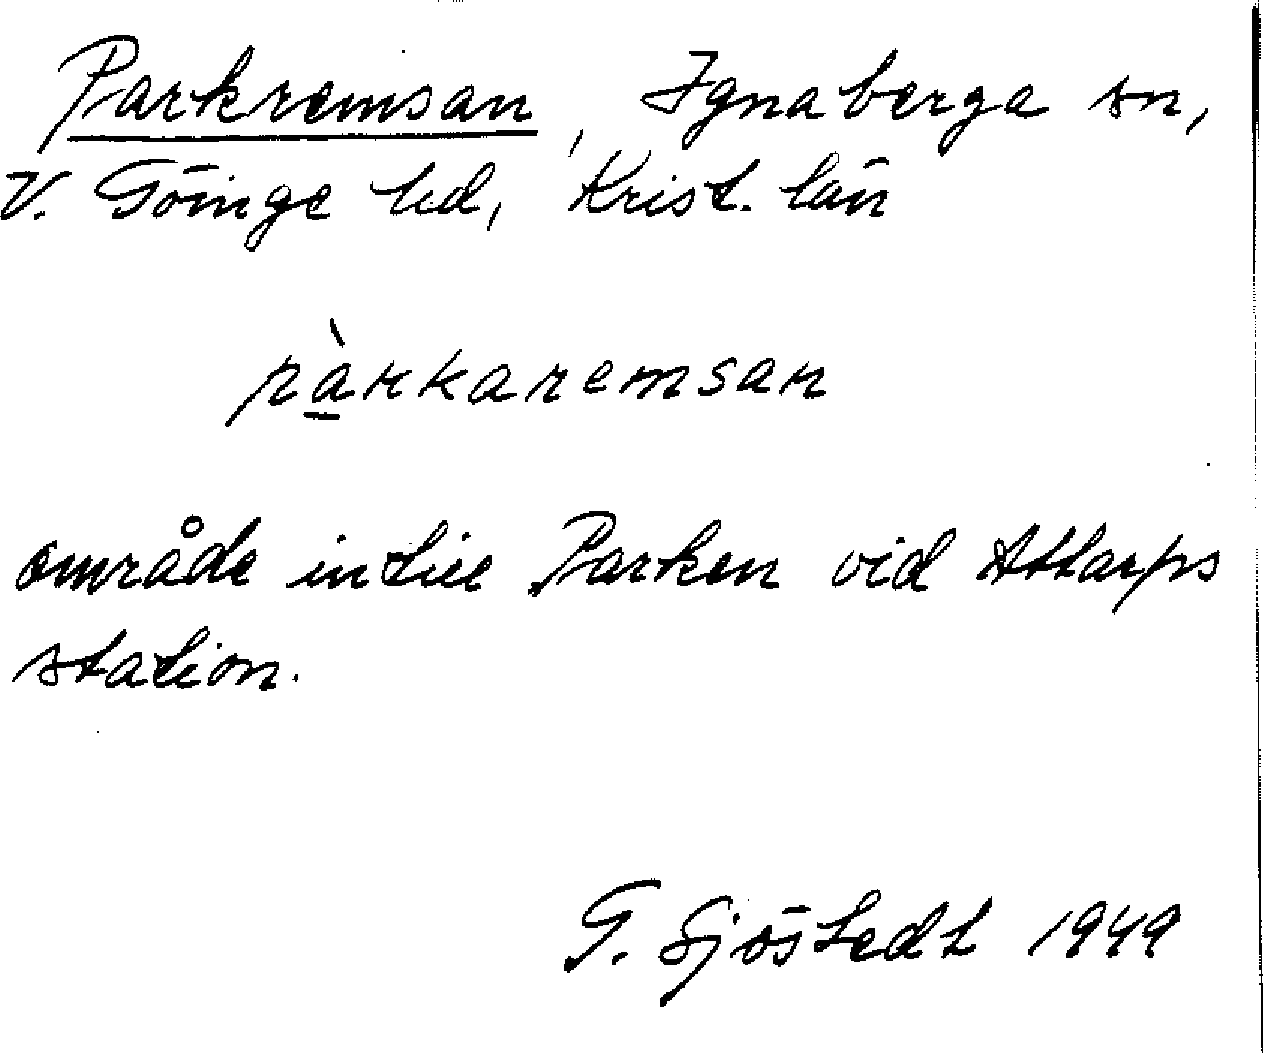 Parkremsan, Ignaberga sn,
V. Göinge hd, Krist. län
pàrkaremsan
område intill Parken vid Attarps
station.
G. Sjöstedt 1949